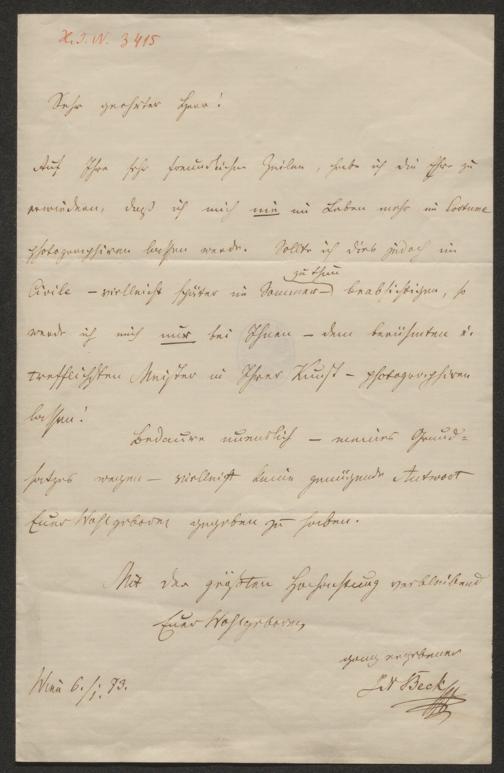 H. I. N. 3415
Sehr geehrter Herr!
Auf Ihre sehr freundlichen Zeilen, habe ich die Ehre zu
erwiedern, daß ich mich nie im Leben mehr im Costume
photographiren lassen werde. Sollte ich dies jedoch im
zu thun
Civile – vielleicht später im Sommer – beabsichtigen, so
werde ich mich nur bei Ihnen – dem berühmten u.
trefflichsten Meister in Ihrer Kunst – photographiren
lassen!
Bedaure unendlich – meines Grund=
satzes wegen – vielleicht keine genügende Antwort
Euer Wohlgeboren gegeben zu haben.
Mit der größten Hochachtung verbleibend
Euer Wohlgeboren
ganz ergebener
Wien 6./1. 73.
J N Beck